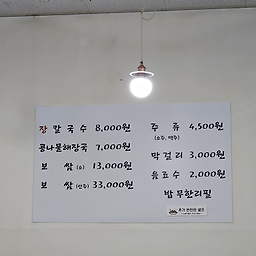 장 칼국수 8,000원
콩나물해장국 7,000원
보 쌈 (소) 13,000원
보 쌈 (산추) 33,000원
주 류 4,500원
(소주, 맥주)
막걸리 3,000원
음료수 2,000원
밥 무한리필
추가 반찬은 셀프